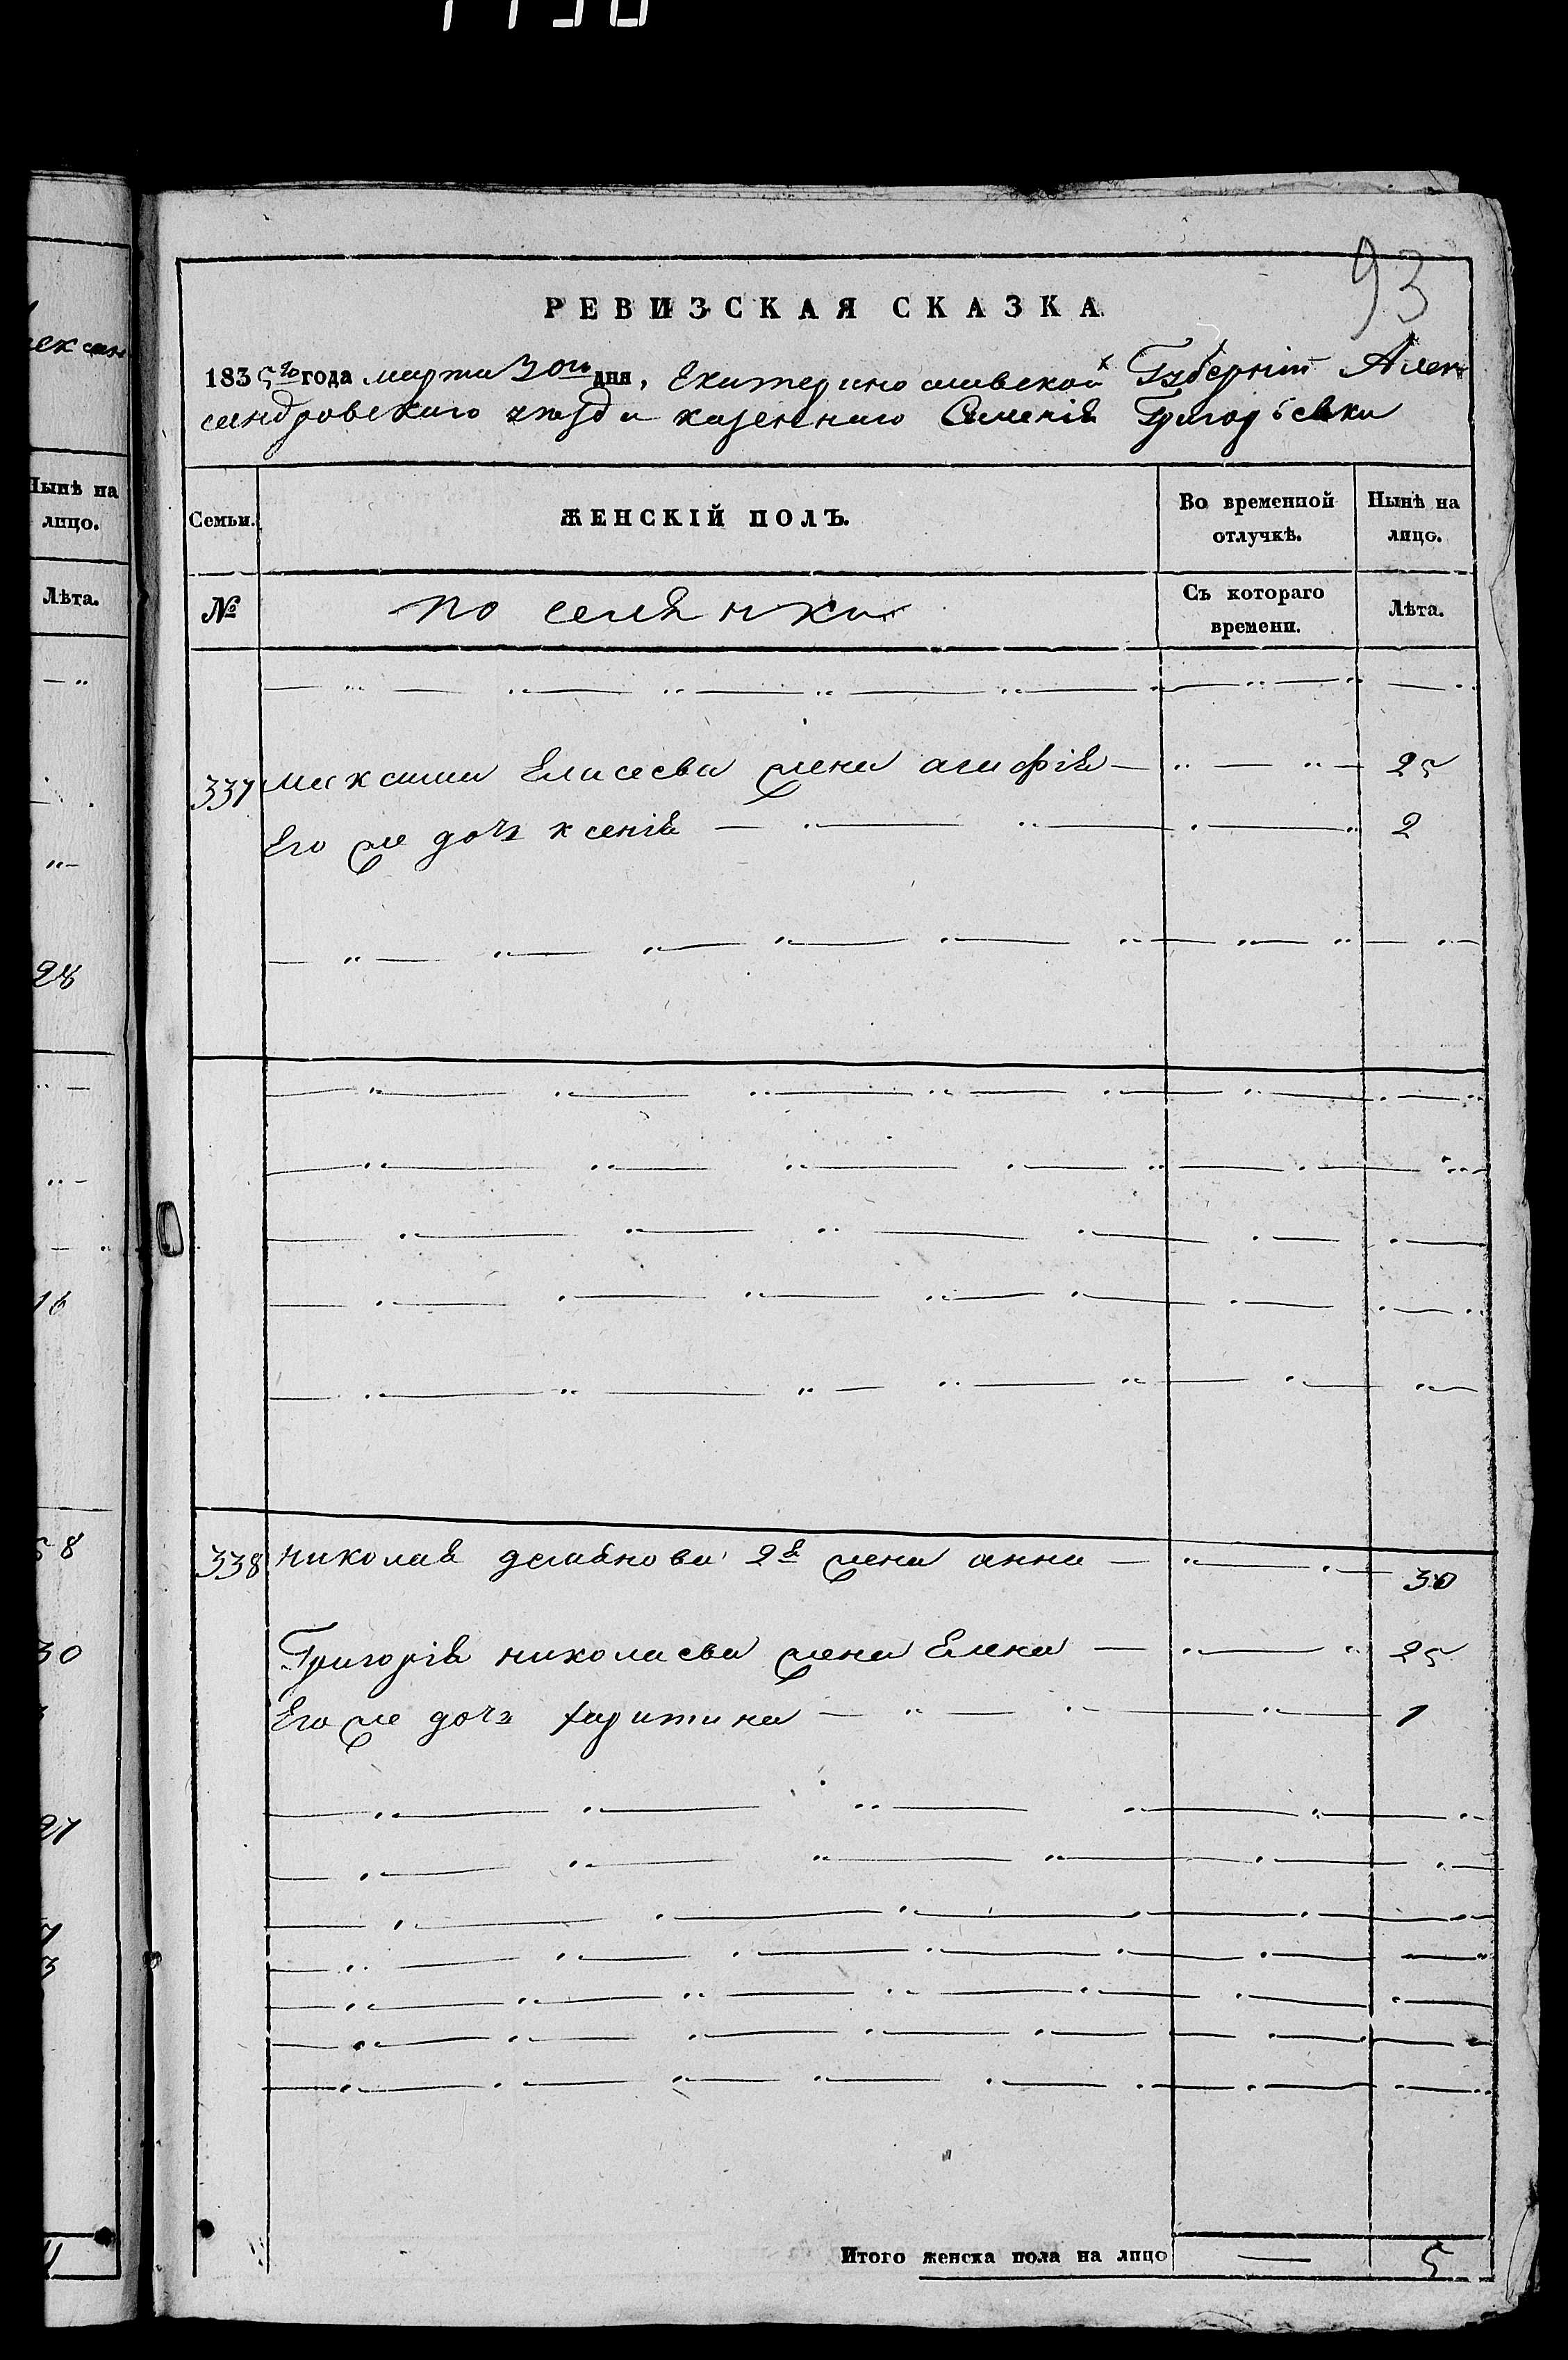 93
РЕВИЗСКАЯ СКАЗКА.
1835го года марта 30го дня, Екатеринославской Губерніи Алек
сандровскаго уѣзда казеннаго Селенія Григорьевки
Семьи. ЖЕНСКІЙ ПОЛЪ. Во временной отлучкѣ. Нынѣ на лицо.
№ поселянки Съ котораго времени. Лѣта.
337 Максима Елисеева жена агафія 25
Его же дочь ксенія 2
338 николая 2я жена анна 30
Григорія николаева жена Елена 25
Его же дочь харитина 1
Итого женска пола на лицо — 5
Нынѣ на
лицо.
Лѣта.
28
16
58
30
27